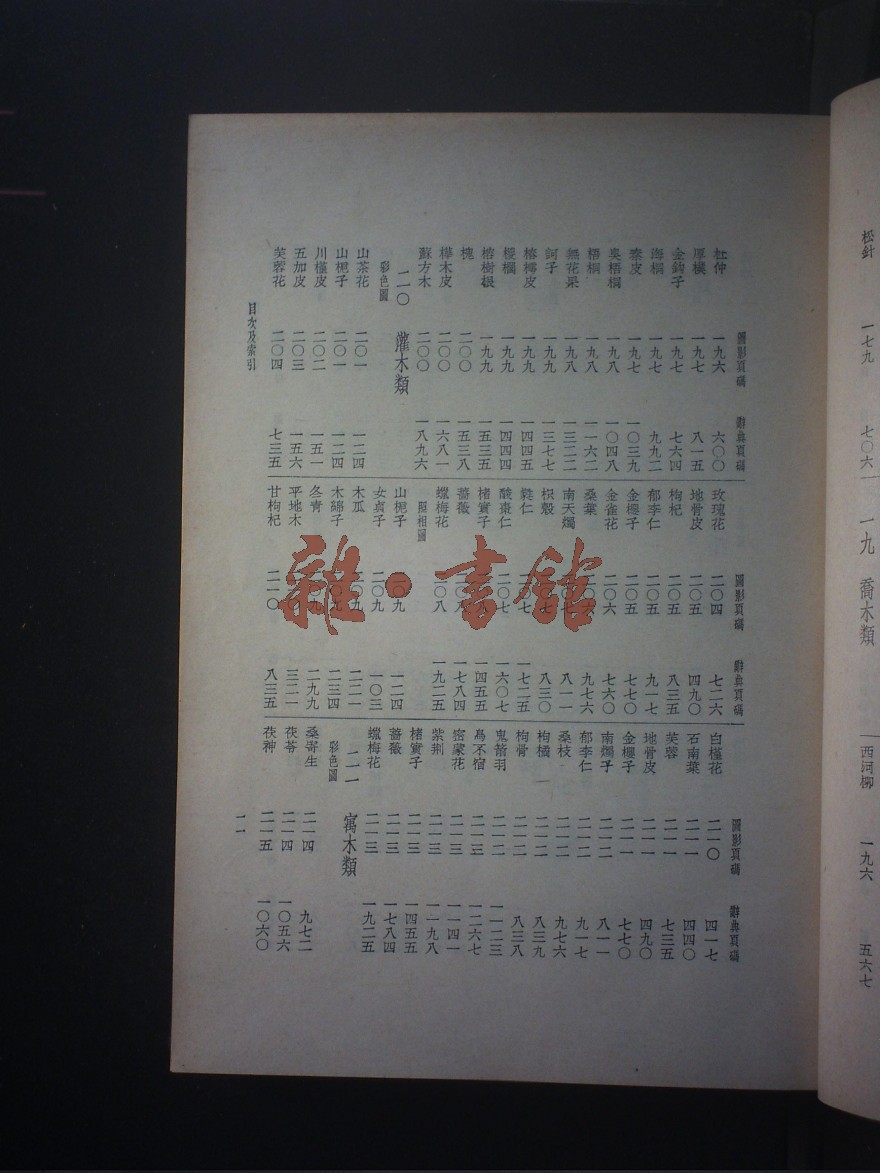 松針 一七九 七〇六
一九 喬木類
西河柳 一九六 五六七
圖影頁碼 辭典頁碼
杜仲 一九六 六〇〇
厚樸 一九七 八一五
金鉤子 一九七 七六四
海桐 一九七 九九二
秦皮 一九七 一〇三九
吳梧桐 一九八 一〇四八
梧桐 一九八 一一六二
無花果 一九八 一三二二
訶子 一九九 一三七七
椿樗皮 一九九 一四四五
椶櫚 一九九 一四四四
榕樹根 一九九 一五三五
槐 二〇〇 一五三八
樺木皮 二〇〇 一六八一
蘇方木 二〇〇 一八九六
二〇 灌木類
彩色圖
山茶花 二〇一 一二四
山梔子 二〇一 一二四
川槿皮 二〇二 一五一
五加皮 二〇三 一五六
芙蓉花 二〇四 七三五
圖影頁碼 辭典頁碼
玫瑰花 二〇四 七二六
地骨皮 二〇五 四九〇
枸杞 二〇五 八三五
郁李仁 二〇五 九一七
金櫻子 二〇五 七七〇
金雀花 二〇六 七六〇
桑葉 二〇六 九七六
南天燭 二〇七 八一一
枳殼 二〇七 八三〇
蕤仁 二〇七 一七二五
酸棗仁 二〇七 一六〇七
楮實子 二〇八 一四五五
薔薇 二〇八 一七八四
蠟梅花 二〇八 一九二五
照相圖
山梔子 二〇九 一二四
女貞子 二〇九 一〇三
木瓜 二〇九 二二一
木綿子 二〇九 二三四
冬青 二〇九 二九九
平地木 二一〇 三二一
甘枸杞 二一〇 八三五
圖影頁碼 辭典頁碼
白槿花 二一〇 四一七
石南葉 二一一 四四〇
芙蓉 二一一 七三五
地骨皮 二一一 四九〇
金櫻子 二一一 七七〇
南燭子 二一二 八一一
郁李仁 二一二 九一七
桑枝 二一二 九七六
枸橘 二一二 八三九
枸骨 二一二 八三八
鬼箭羽 二一二 一一二三
鳥不宿 二一三 一二六七
密蒙花 二一三 一一四一
紫荆 二一三 一一九八
楮實子 二一三 一四五五
薔薇 二一三 一七八四
蠟梅花 二一三 一九二五
二一 寓木類
彩色圖
桑寄生 二一四 九七二
茯苓 二一四 一〇五六
茯神 二一五 一〇六〇
目次及索引
一一
雜·書館